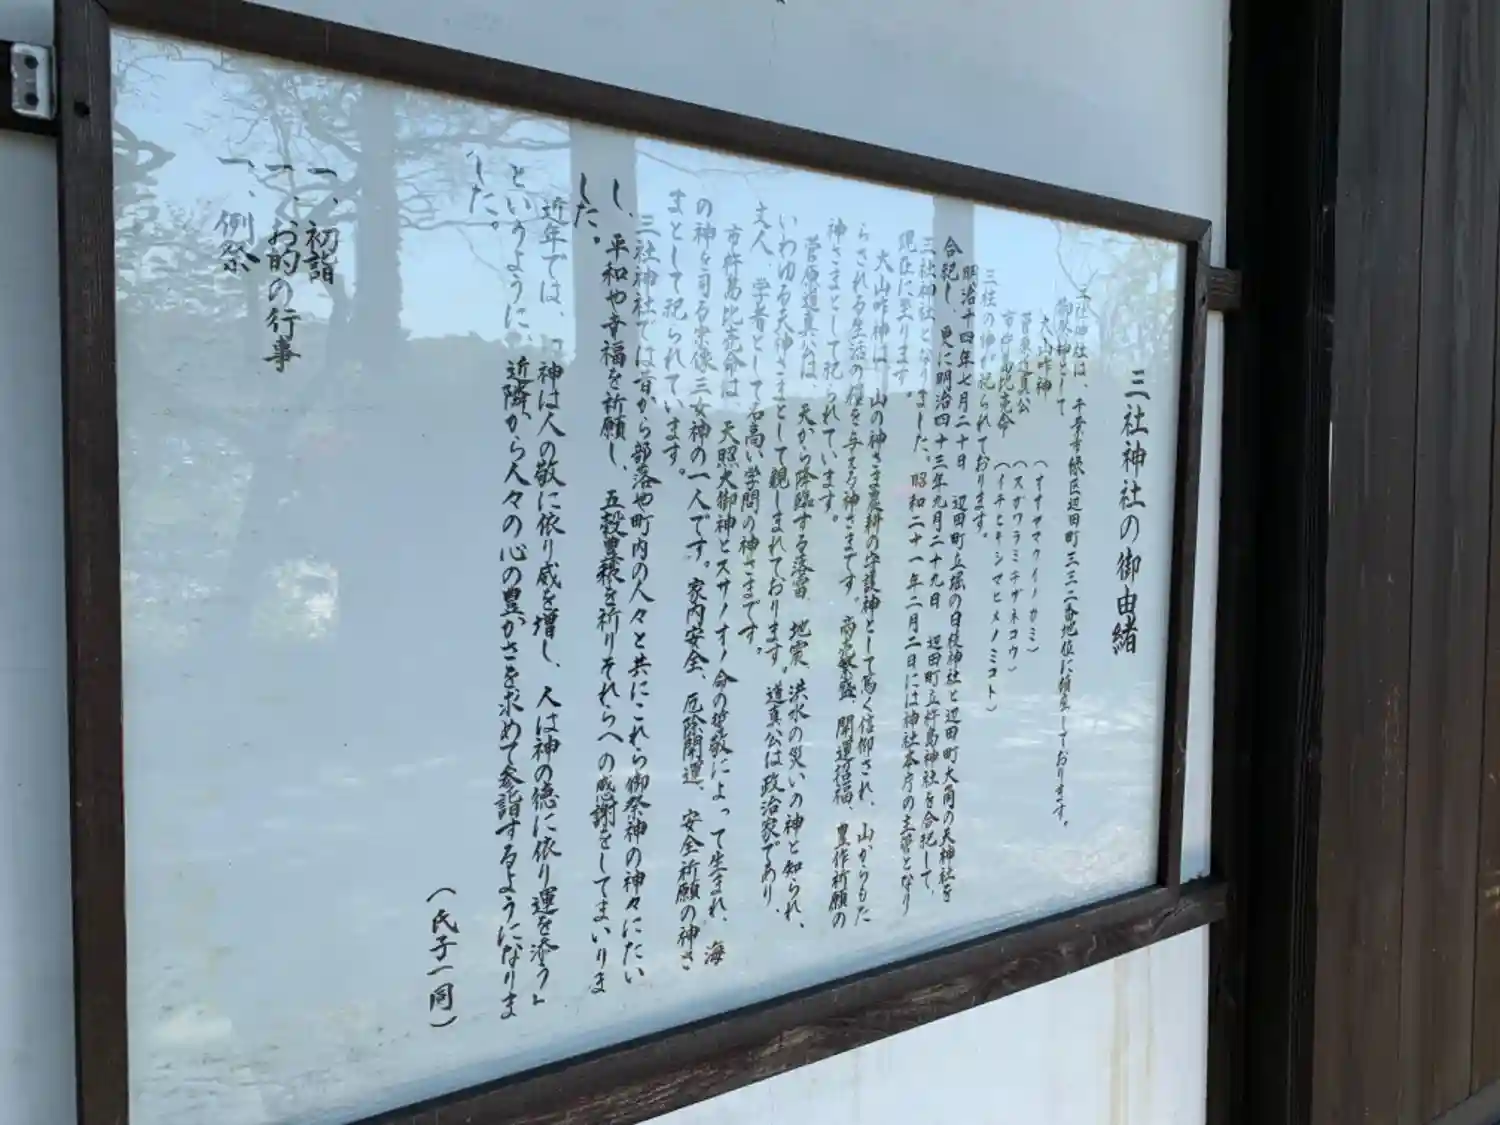 三社神社の御由緒
三社神社は、千葉市緑区辺田町三三二番地位に鎮座しております。
御祭神として
大山咋神 (オオヤマクイノカミ)
菅原道真公 (スガワラミチザネコウ)
市杵島比売命 (イチヒキシマヒメノミコト)
三柱の神が祀られております。
明治十四年七月二十日 辺田町立堀の日枝神社と辺田町大角の天神社を
合祀し、更に明治四十三年九月二十九日 辺田町立杵島神社を合祀して、
三社神社となりました。昭和二十一年二月二日には神社本庁の主管となり
現在に至ります。
大山咋神は、山の神さま農耕の守護神として篤く信仰され、山からもた
らされる生活の糧を与える神さまです。商売繁盛、開運招福、豊作祈願の
神さまとして祀られています。
菅原道真公は、天から降臨する落雷 地震 洪水の災いの神と知られ、
いわゆる天神さまとして親しまれております。道真公は政治家であり、
文人 学者としても名高い学問の神さまです。
市杵島比売命は、天照大御神とスサノオノ命の誓約によって生まれ、海
の神を司る宗像三女神の一人です。家内安全、厄除開運、安全祈願の神さ
まとして祀られています。
三社神社では昔から部落や町内の人々と共にこれら御祭神の神々にたい
し、平和や幸福を祈願し、五穀豊穣を祈りそれらへの感謝をしてまいりま
した。
近年では、「神は人の敬に依り威を増し、人は神の徳に依り運を添う」
というように、近隣から人々の心の豊かさを求めて参詣するようになりま
した。
(氏子一同)
一、初詣
一、お的の行事
一、例祭